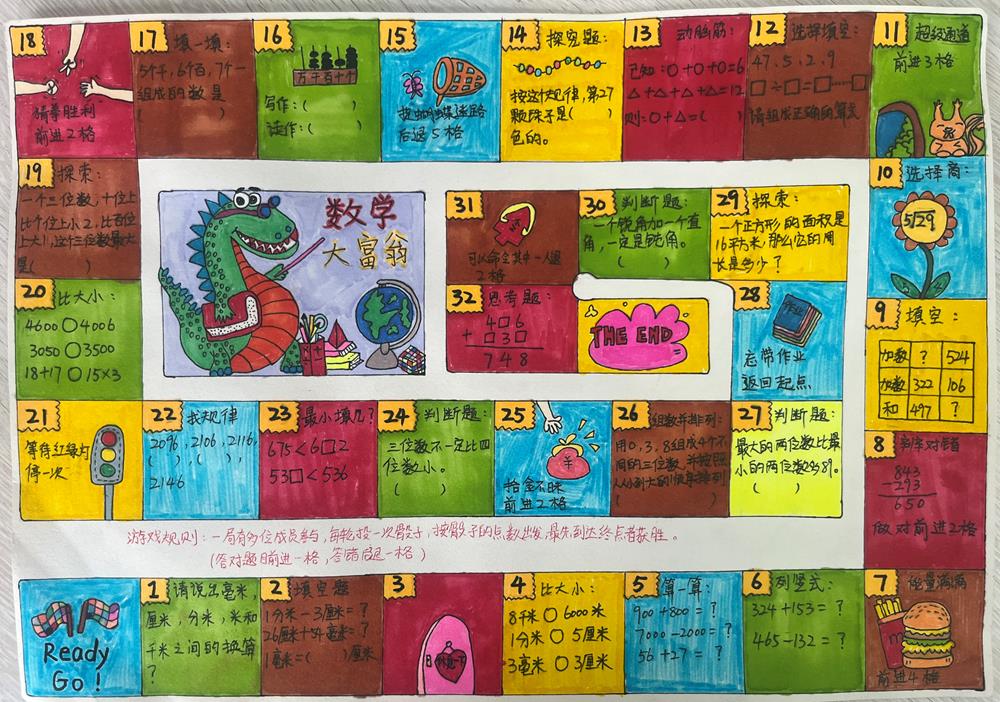 18
猜拳胜利
前进2格
17
填一填：
5个千，6个百，7个一
组成的数是
（ ）
16
万千百十个
写作：（ ）
读作：（ ）
15
捉蝴蝶迷路
后退5格
14
探究题：
按这个规律，第27
颗珠子是（ ）
色的。
13
动脑筋：
已知：○+○+○=6
△+△+△+△=12
则：○+△=（ ）
12
选择填空：
47、5、2、9
□÷□=□……□
请组成正确的算式
11
超级通道
前进3格
19
探索：
一个三位数，十位上
比个位上小2，比百位
上大1，这个三位数最大
是（ ）
数学
大富翁
31
可以命令其中一人退
2格
30
判断题：
一个锐角加一个直
角，一定是钝角。
（ ）
29
探索：
一个正方形的面积是
16平方米，那么它的周
长是多少？
10
选择商：
5/29
20
比大小：
4600○4006
3050○3500
18+17○15×3
32
思考题：
4□6
+□3□
748
THE END
28
作业
忘带作业
返回起点
9
填空：
加数 ？ 524
加数 322 106
和 497 ？
21
等待红绿灯
停一次
22
找规律
2096，2106，2116，
（ ），（ ），
2146
23
最小填几？
675<6□2
53□<536
24
判断题：
三位数不一定比四
位数小。
（ ）
25
拾金不昧
前进2格
26
组数并排列：
用0，3，8组成4个不
同的三位数，并按照
从小到大的顺序排列
（ ）
27
判断题：
最大的两位数比最
小的两位数多89。
（ ）
8
判断对错
843
-293
650
做对前进2格
游戏规则：一局有多位成员参与，每轮投一次骰子，按骰子的点数出发，最先到达终点者获胜。
（答对题目前进一格，答错后退一格）
Ready
Go！
1
请说出毫米，
厘米，分米，米和
千米之间的换算
？
2
填空题
1分米-3厘米=？
26厘米+54毫米=？
1毫米=（ ）厘米
3
休息一下
4
比大小：
8千米○6000米
1分米○5厘米
3毫米○3厘米
5
算一算：
900+800=？
7000-2000=？
56+27=？
6
列竖式：
324+153=？
465-132=？
7
能量满满
m
前进4格